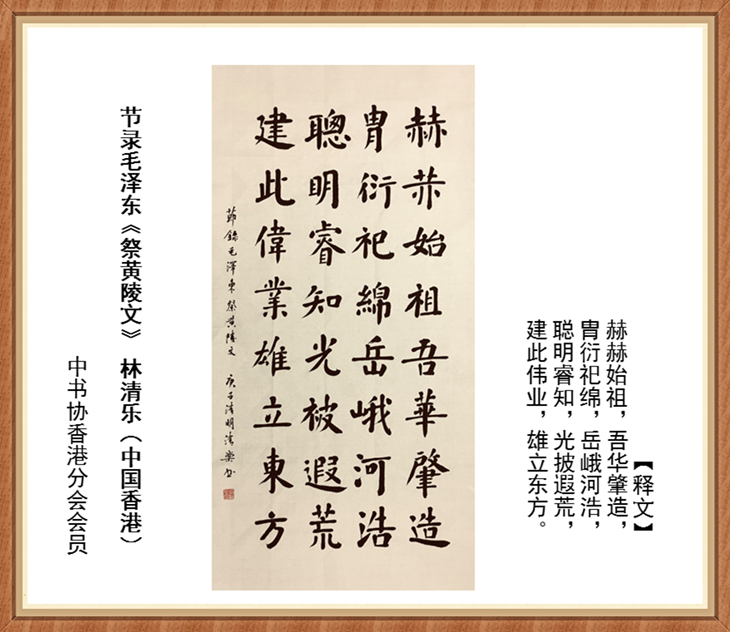 【释文】
赫赫始祖，吾华肇造，
胄衍祀绵，岳峨河浩，
聪明睿知，光披遐荒，
建此伟业，雄立东方。
赫赫始祖吾華肇造
胄衍祀綿岳峨河浩
聰明睿知光被遐荒
建此偉業雄立東方
節錄毛澤東祭黄陵文 庚子清明清樂书
节录毛泽东《祭黄陵文》 林清乐（中国香港）
中书协香港分会会员